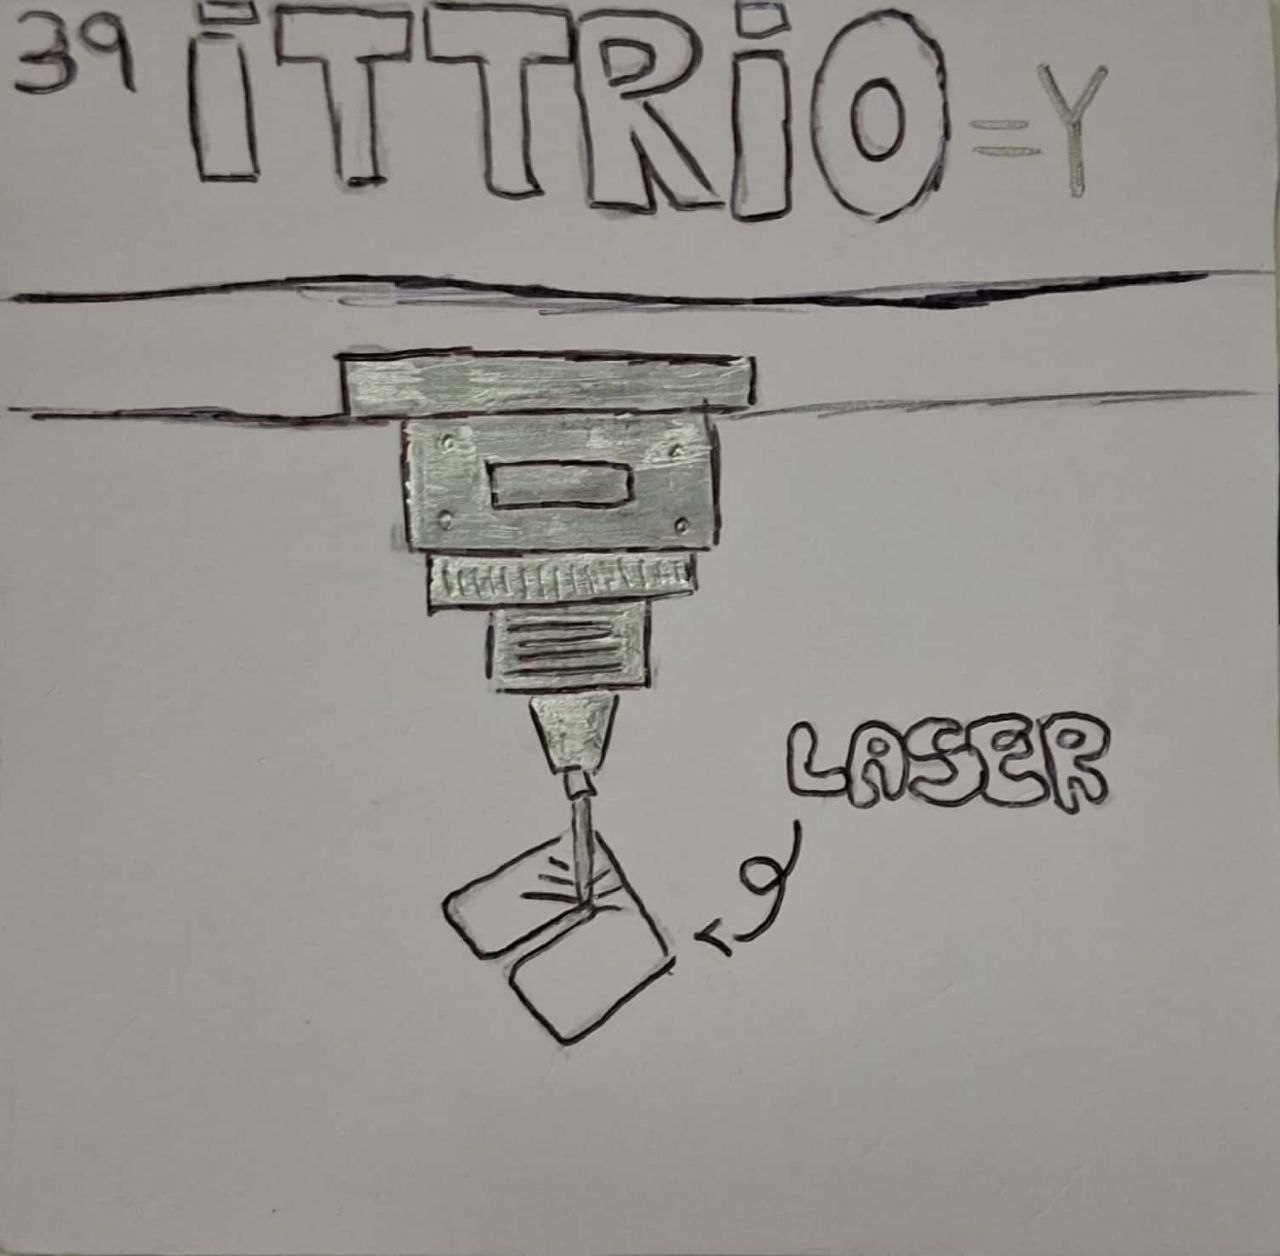 39 iTTRiO = Y
LASER